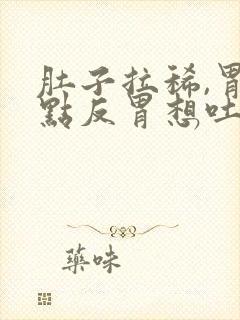 肚子拉稀,胃
點反胃想吐
藥味